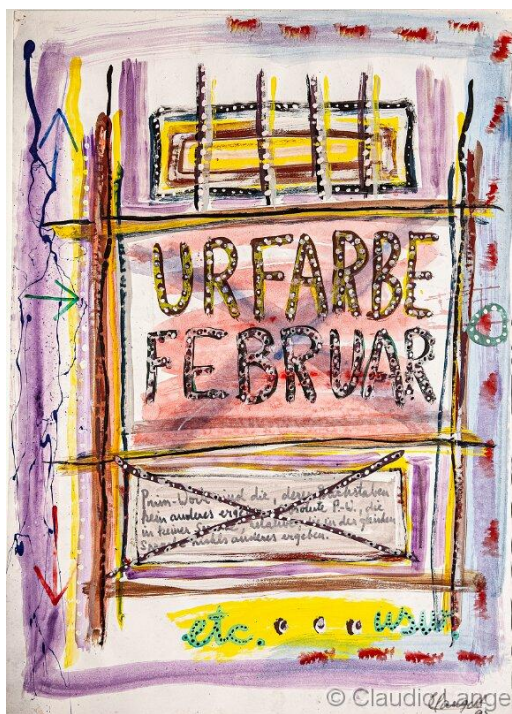 URFARBE
FEBRUAR
Prim-Worte sind die, deren Buchstaben
kein anderes absolute P-W., die
in keiner relative die in der gleichen
nichts anderes ergeben.
etc. . . . usw.
© Claudio Lange